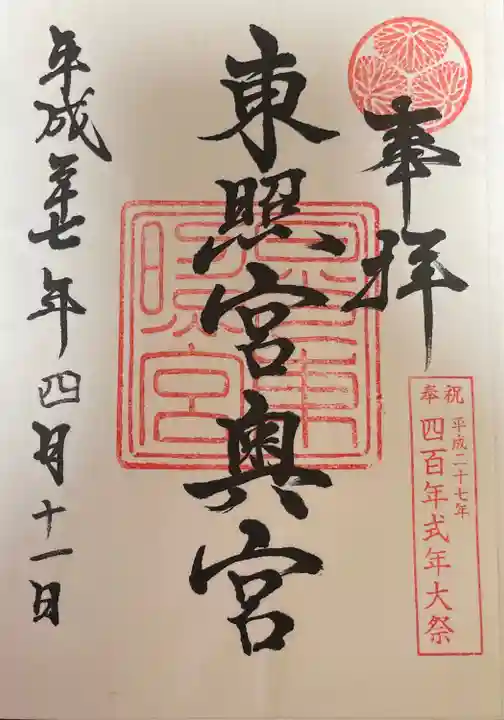 奉拝
奉祝
平成二十七年
四百年式年大祭
東照宮奥宮
平成廿七年四月十一日